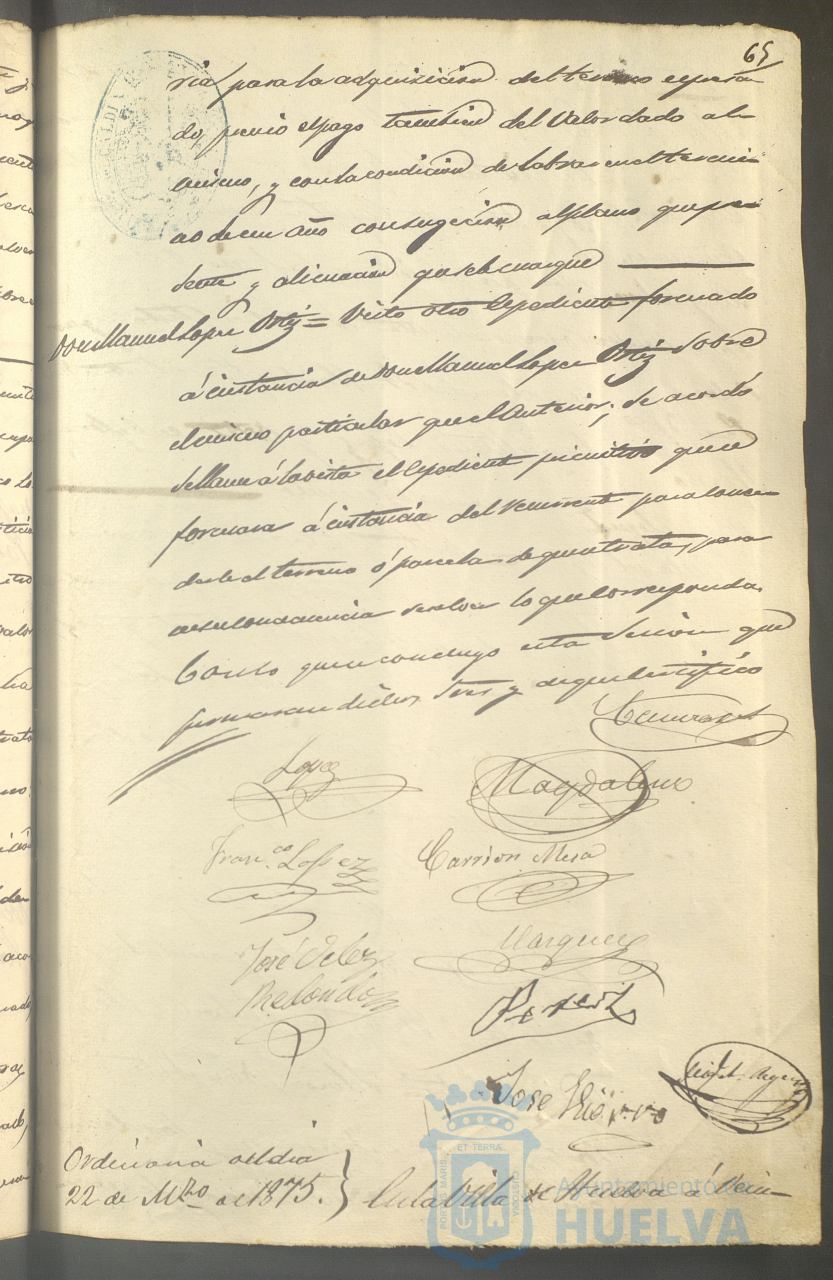 65
ria para la adquisicion del terreno espresa-
do, previo el pago tambien del valor dado al
mismo, y con la condicion de labrar en el termi-
no de un año con sugecion al plano que pre-
sente y alineacion que se le marque
Don Manuel Lopez Ortiz = Visto otro espediente formado
á instancia de Don Manuel Lopez Ortiz sobre
el mismo particular que el anterior; se acordó
se llame á la vista el espediente primitivo que se
formara á instancia del recurrente para conce-
derle el terreno ó parcela de que se trata, para
en su consecuencia resolver lo que corresponda.
Con lo que se concluyo esta Sesion que
firmaran dichos Sres y de que certifico
Lopez
Magdaleno
Fran.co Lopez
Carrion Mesa
José Velez
Redondo
Marquez
José
Ordinaria del dia
22 de Mzo de 1875. } En la Villa de Huelva á vein-
ET TERRA
PORTUS MARIS
CUSTODIA
Ayuntamiento de
HUELVA